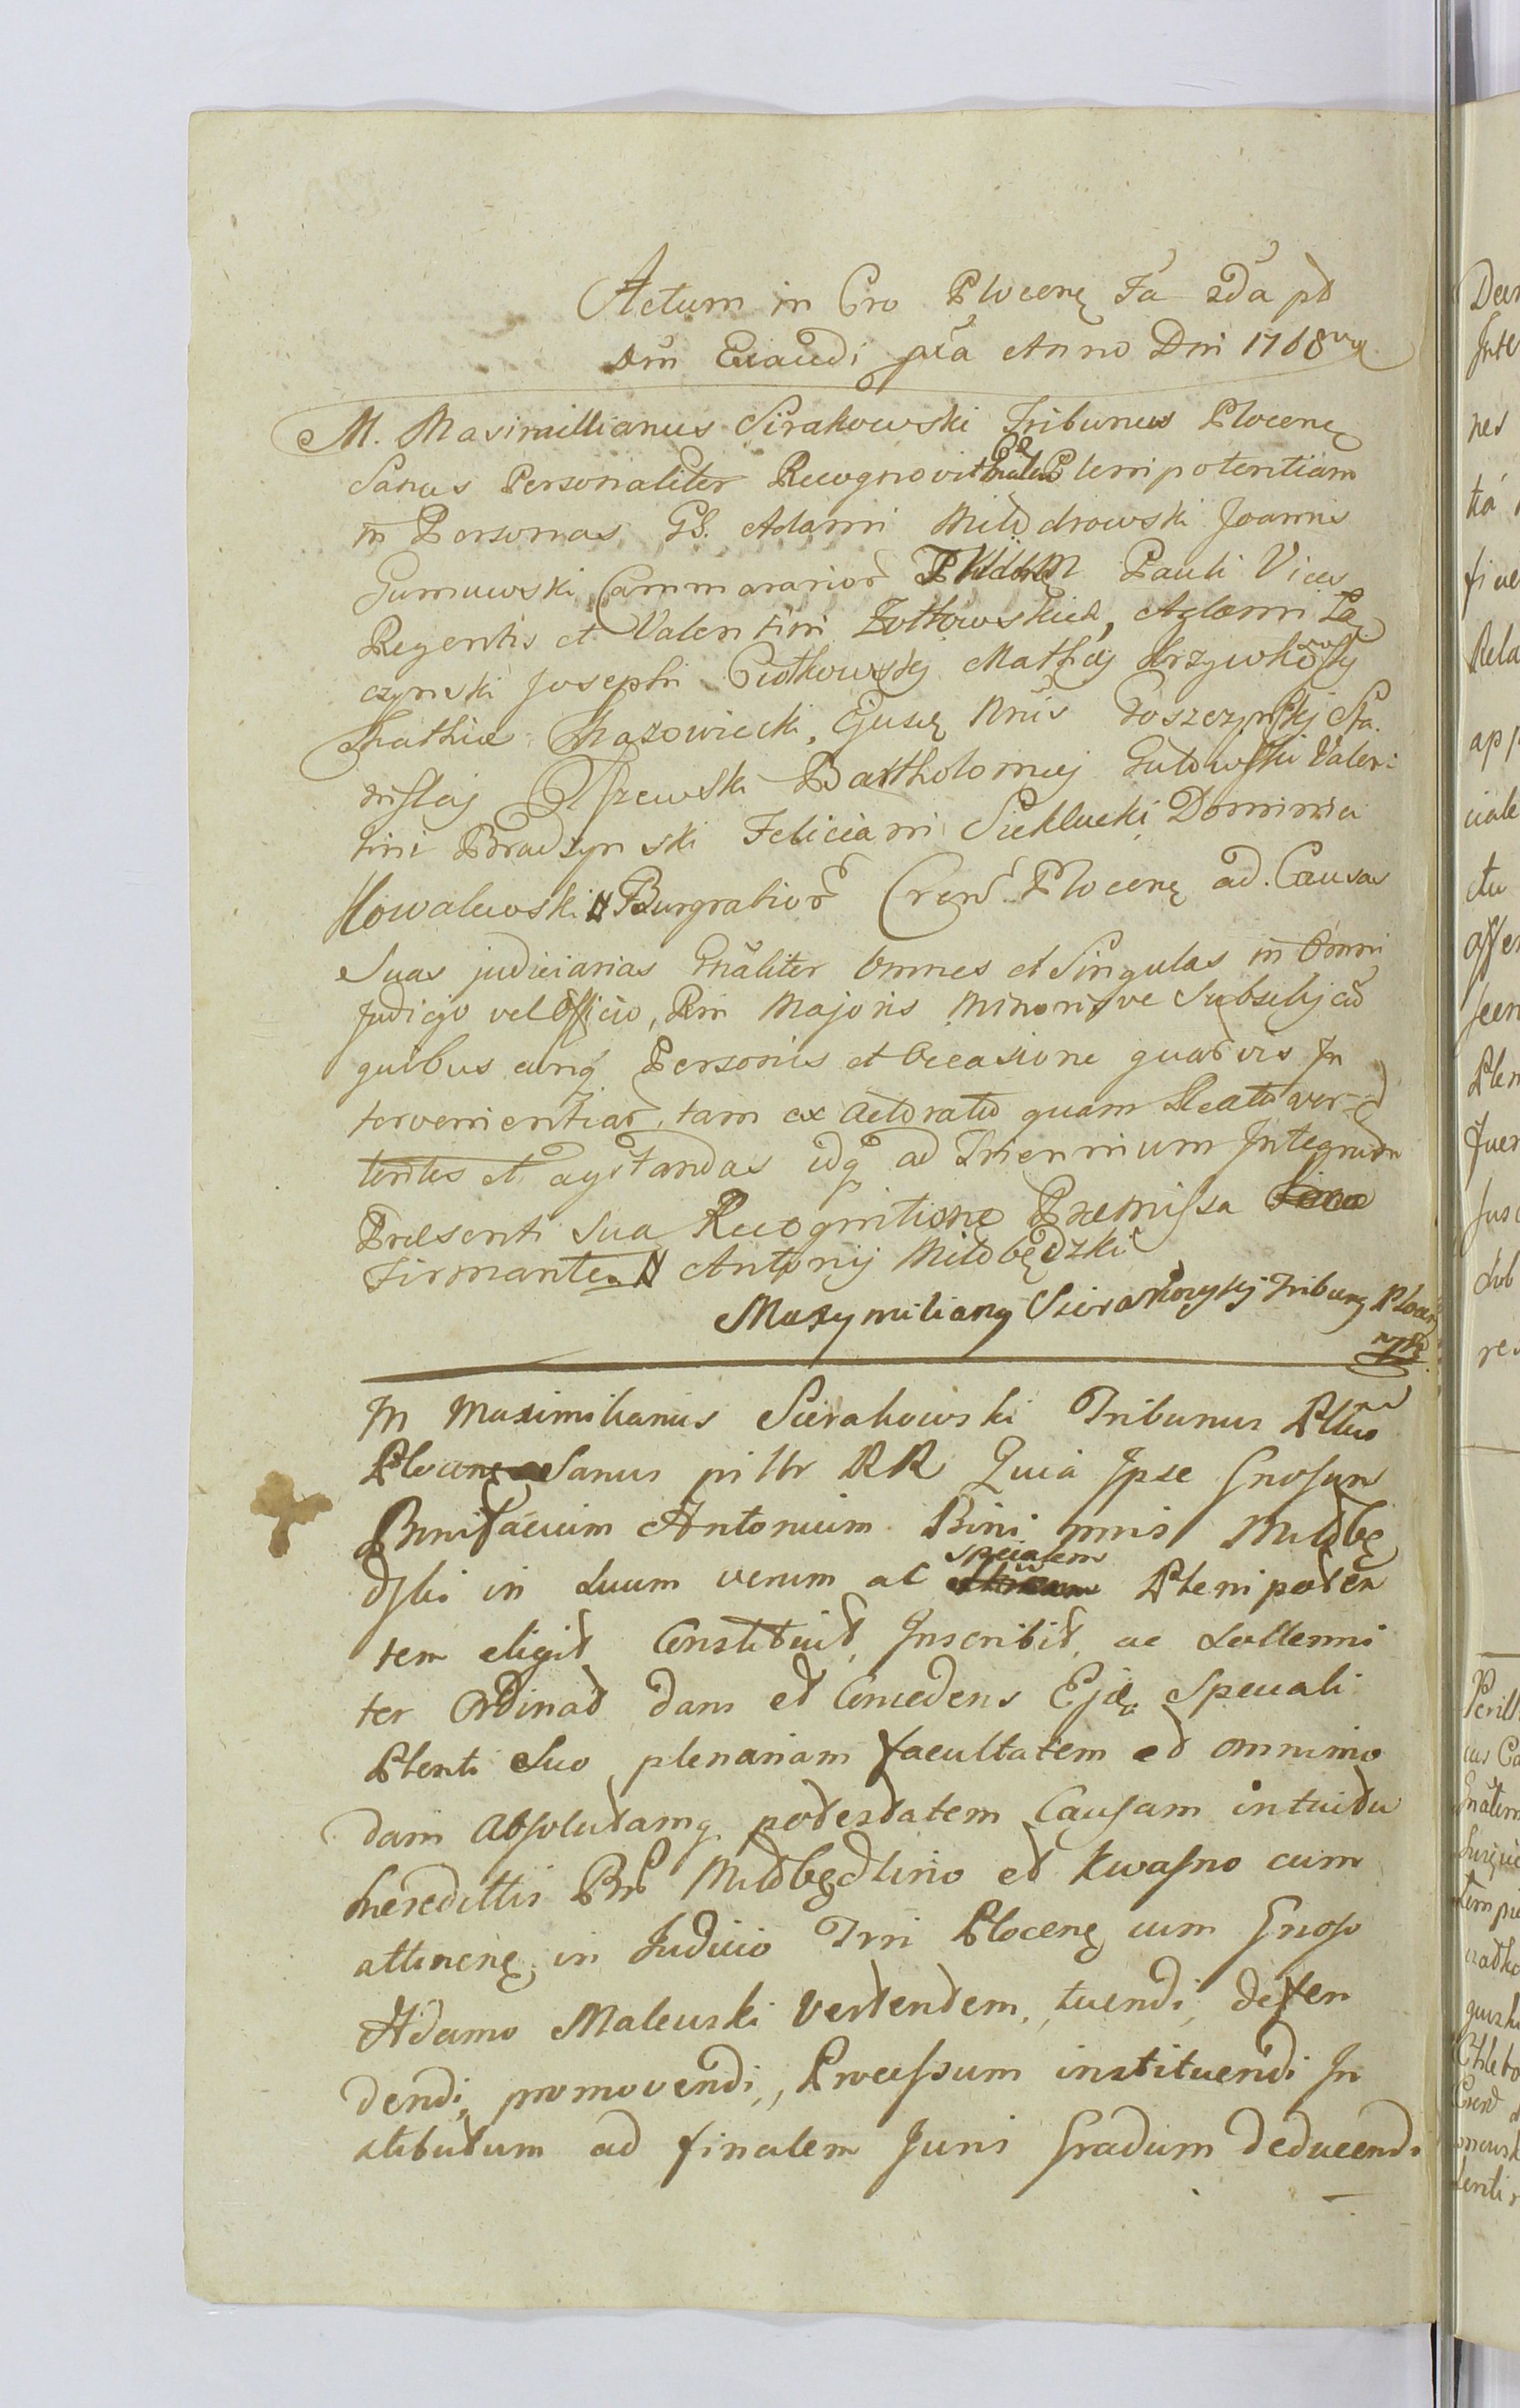 Actum in Cro Plocenę Fa 2da pt
Dm Exaudi pxa Anno Dni 1768vo
M. Maximillianus Sirakowski Tribunus Plocenę
Sanus Personaliter Recognovit Plenipotentiam
in Personas GG. Adami Milodrowski Joannis
Gumowski Cammerarior Pauli Vices
Regentis et Valentini Zołtowskich, Adami Łą
czynski Josephi Ciołkowskij Mathej Krzywkowskij
Mathiæ Mazowiecki, Ejusę Nnis Goszczynskij Sta.
nislaj Olszewski Bartholomej Gutowski Valen:
tini Bradzynski Feliciani Siekłucki Dominici
Kowalewski Burgrabior Cren Plocenę ad Causas
Suas judiciarias Gnaliter Omnes et Singulas in Omni
Judicio vel Officio, Rni Majoris Minorisve Subselij cu
quibus cunq Personis et Occasione quarvis In
tervenientiar, tam ex Actoratu quam Reatu ver
tentes et agitandas idq ad Triennium Integrum
Præsenti sua Recognitione Præmissa
Firmante. Antonij Miłobędzki
Maxymiliany Sierakowskij Tribuny Plocen
mp
M Maximilianus Sierakowski Tribunus Pltus
Plocenę Sanus pnltr RR Quia Ipse Gnosum
Bonifacium Antonium Bini nnis Miłobę
dzki in Suum verum ac specialem Plenipoten
tem eligit Constituit, Inscribit, ac Sollenni
ter Ordinat dans et Concedens Ejdę Speciali
Plenti Suo plenariam facultatem et omnimo
dam Absolutamq potestatem Causam intuitu
heredittis Bnr Miłobędzino et Kwasno cum
attinenę, in Judicio Trri Plocenę cum Gnoso
Adamo Malewski vertentem, tuendi, defen
dendi, promovendi, Processum instituendi In
stitutum ad finalem Juris Gradum deducendi